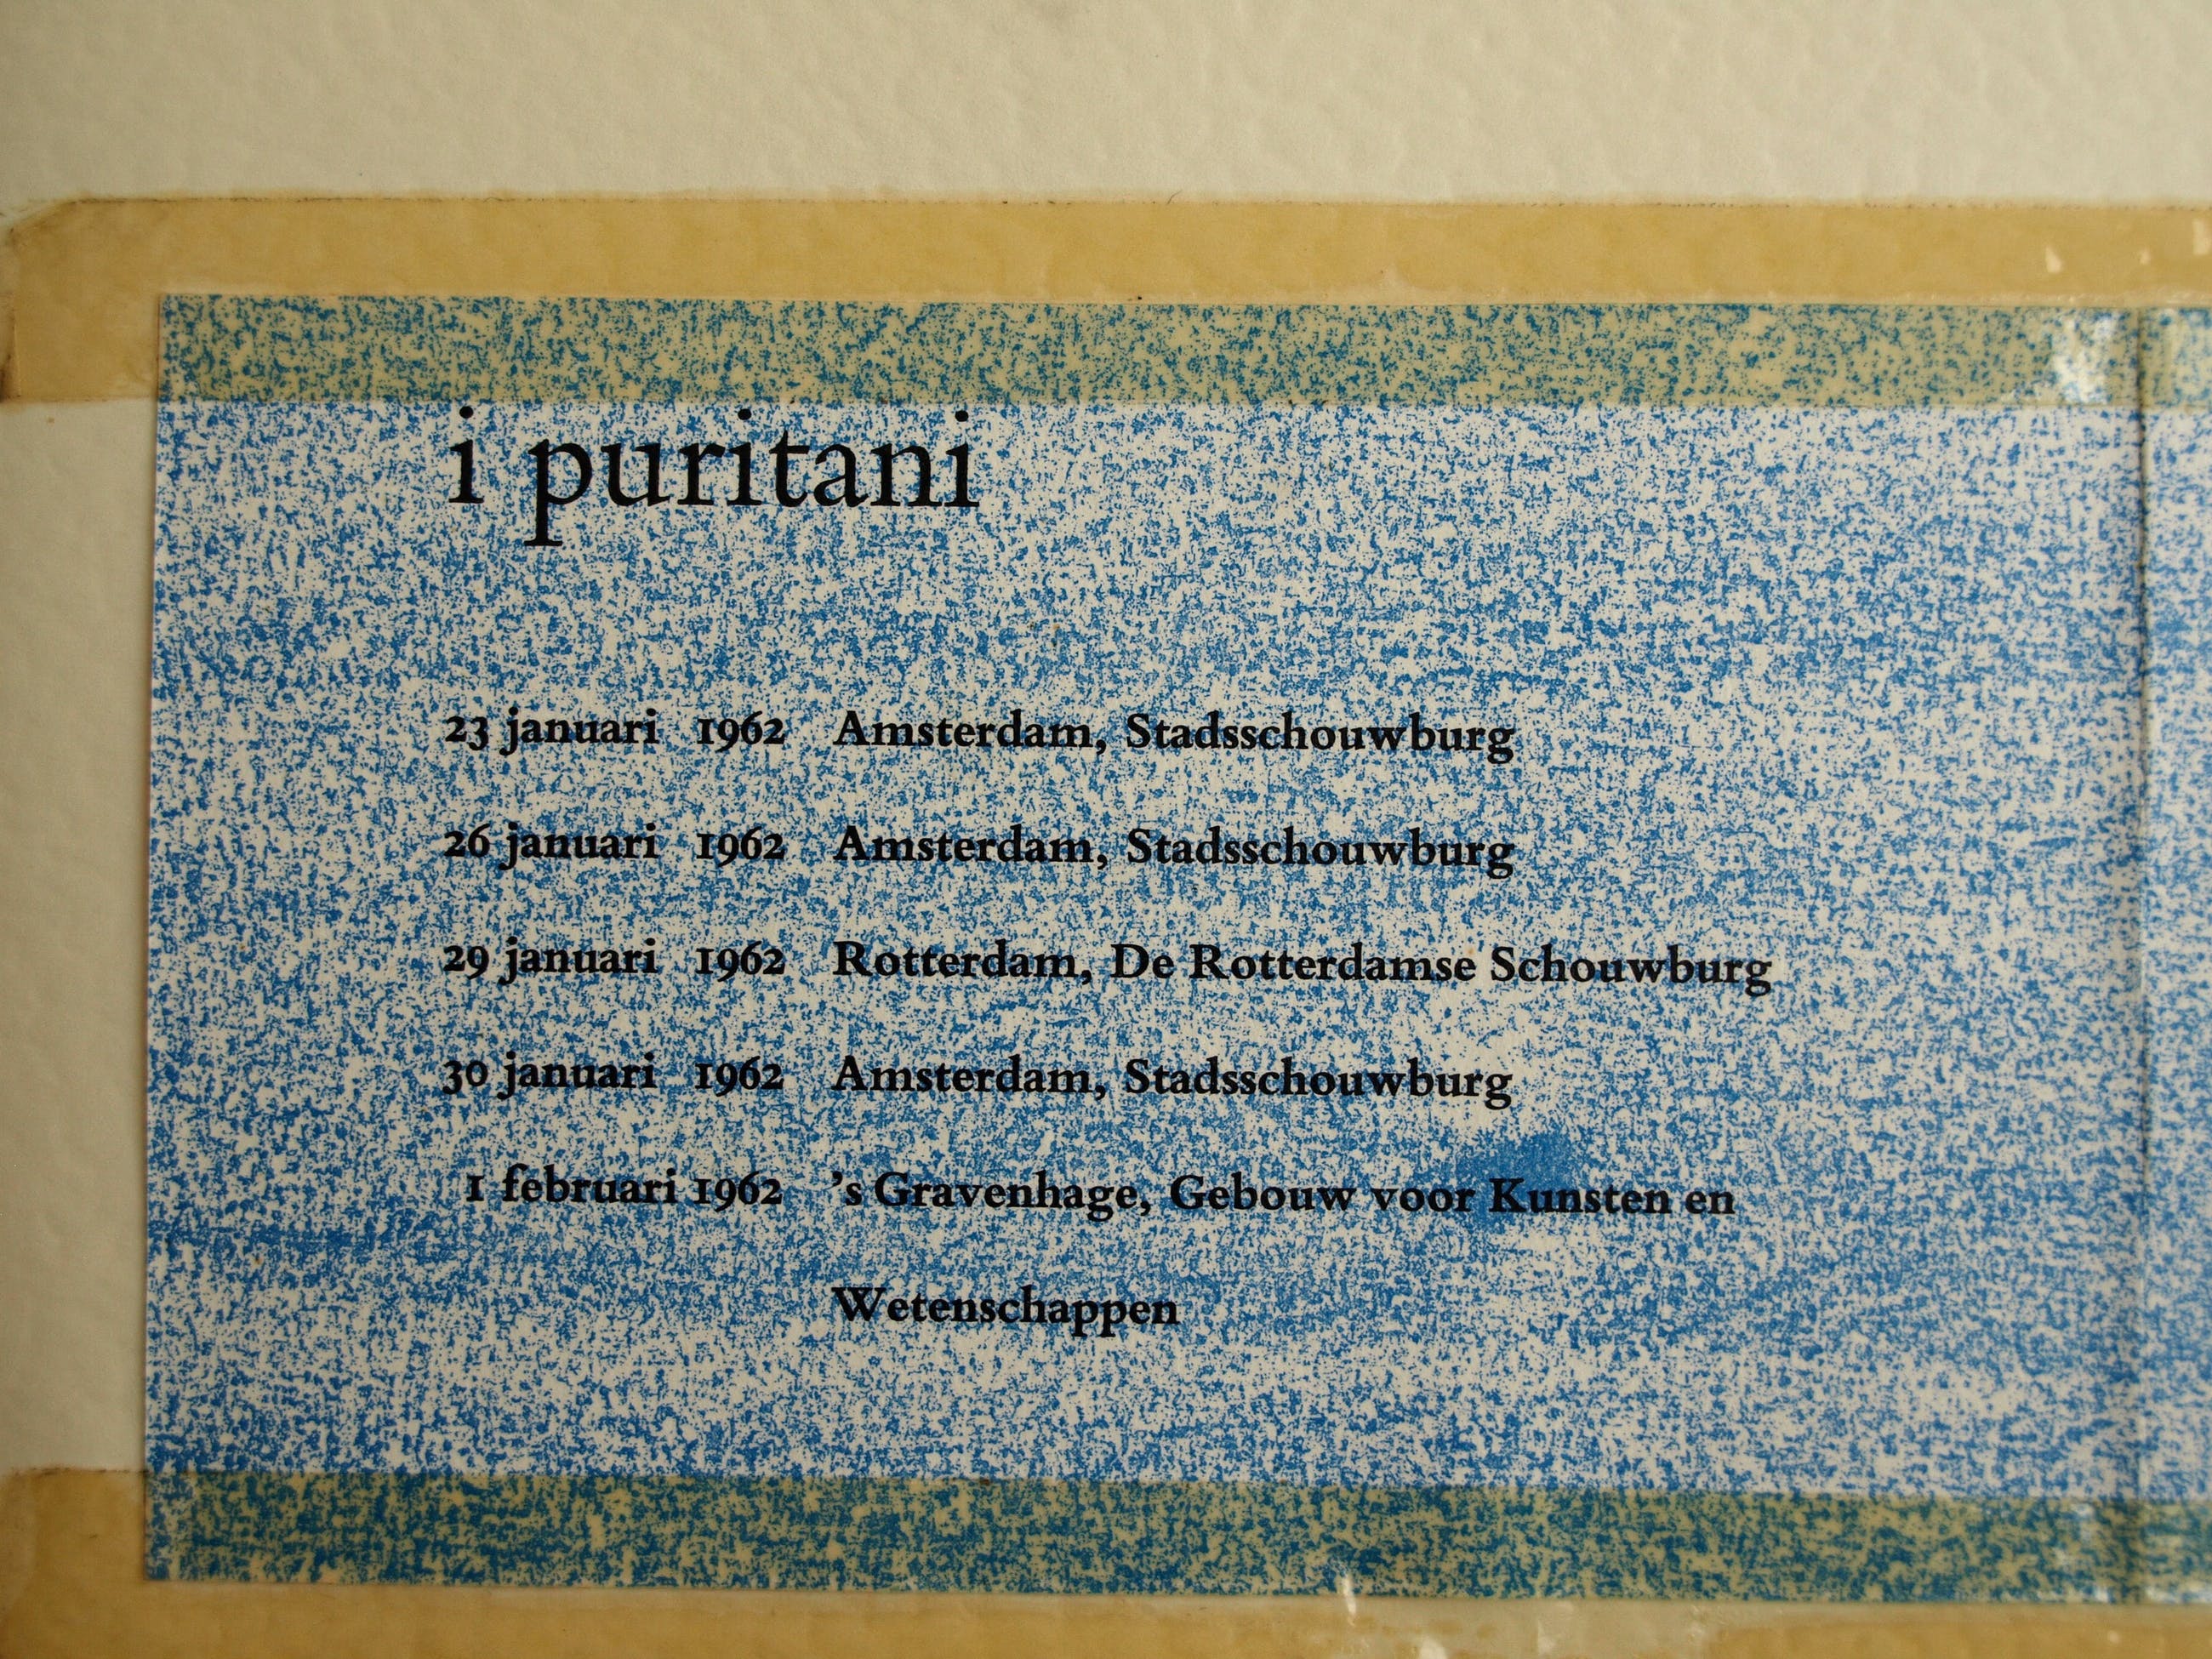 i puritani
23 januari 1962 Amsterdam, Stadsschouwburg
26 januari 1962 Amsterdam, Stadsschouwburg
29 januari 1962 Rotterdam, De Rotterdamse Schouwburg
30 januari 1962 Amsterdam, Stadsschouwburg
1 februari 1962 's Gravenhage, Gebouw voor Kunsten en
Wetenschappen